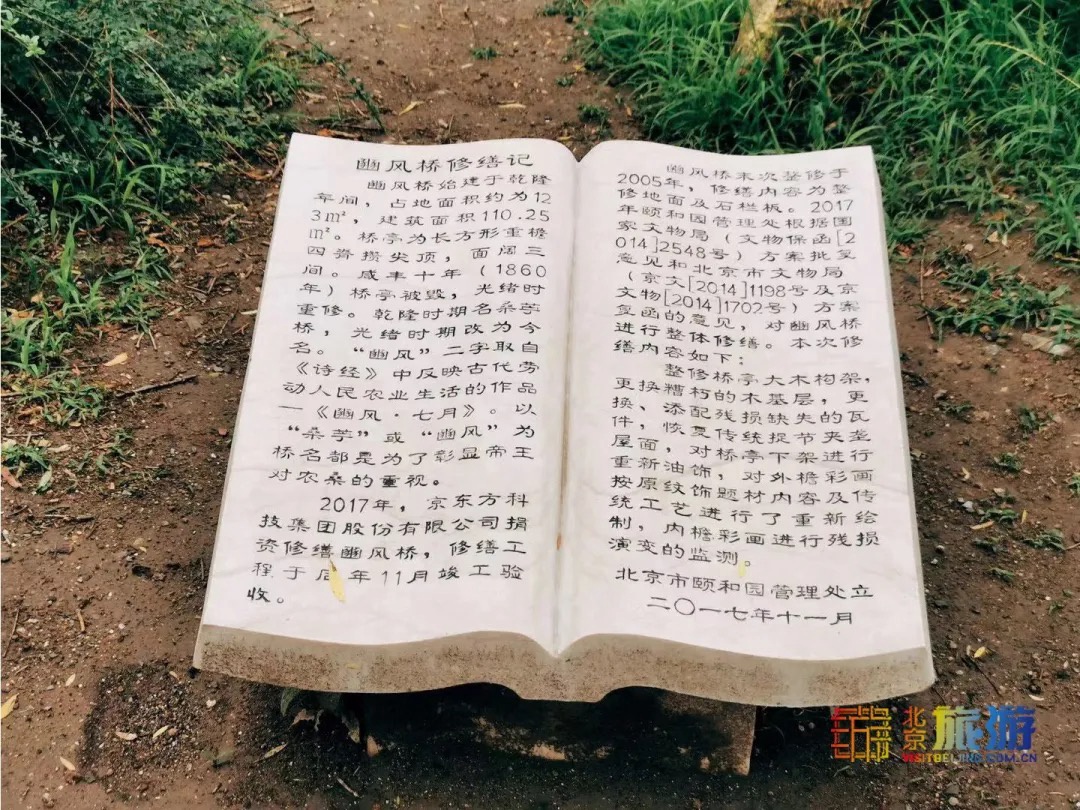 豳风桥修缮记
豳风桥始建于乾隆
年间，占地面积约为12
3m²，建筑面积110.25
m²。桥亭为长方形重檐
四脊攒尖顶，面阔三
间。咸丰十年（1860
年）桥亭被毁，光绪时
重修。乾隆时期名桑苎
桥，光绪时期改为今
名。“豳风”二字取自
《诗经》中反映古代劳
动人民农业生活的作品
—《豳风·七月》。以
“桑苎”或“豳风”为
桥名都是为了彰显帝王
对农桑的重视。
2017年，京东方科
技集团股份有限公司捐
资修缮豳风桥，修缮工
程于同年11月竣工验
收。
豳风桥末次整修于
2005年，修缮内容为整
修地面及石栏板。2017
年颐和园管理处根据国
家文物局（文物保函[2
014]2548号）方案批复
意见和北京市文物局
（京文[2014]1198号及京
文物[2014]1702号）方案
复函的意见，对豳风桥
进行整体修缮。本次修
缮内容如下：
整修桥亭大木构架，
更换糟朽的木基层，更
换、添配残损缺失的瓦
件，恢复传统捉节夹垄
屋面，对桥亭下架进行
重新油饰，对外檐彩画
按原纹饰题材内容及传
统工艺进行了重新绘
制，内檐彩画进行残损
演变的监测。
北京市颐和园管理处立
二〇一七年十一月
北京旅游
VISITBEIJING.COM.CN